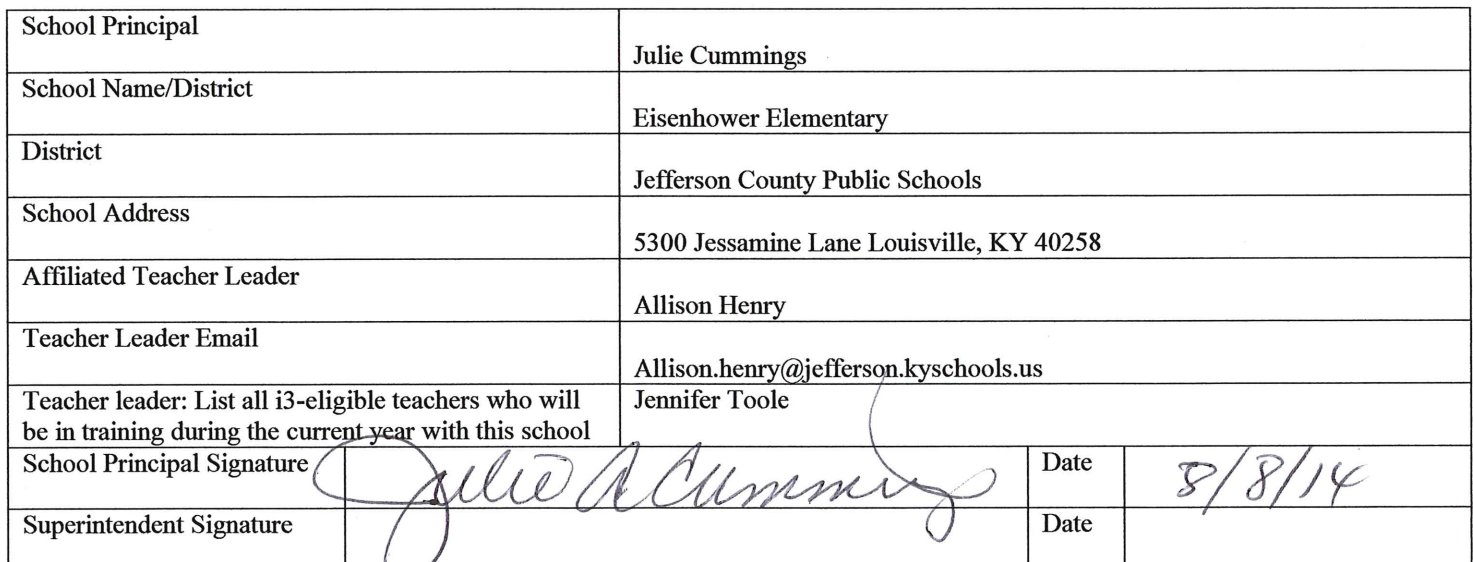 School Principal
Julie Cummings
School Name/District
Eisenhower Elementary
District
Jefferson County Public Schools
School Address
5300 Jessamine Lane Louisville, KY 40258
Affiliated Teacher Leader
Allison Henry
Teacher Leader Email
Allison.henry@jefferson.kyschools.us
Teacher leader: List all i3-eligible teachers who will
be in training during the current year with this school
Jennifer Toole
School Principal Signature
Julie A Cummings
Date
8/8/14
Superintendent Signature
Date